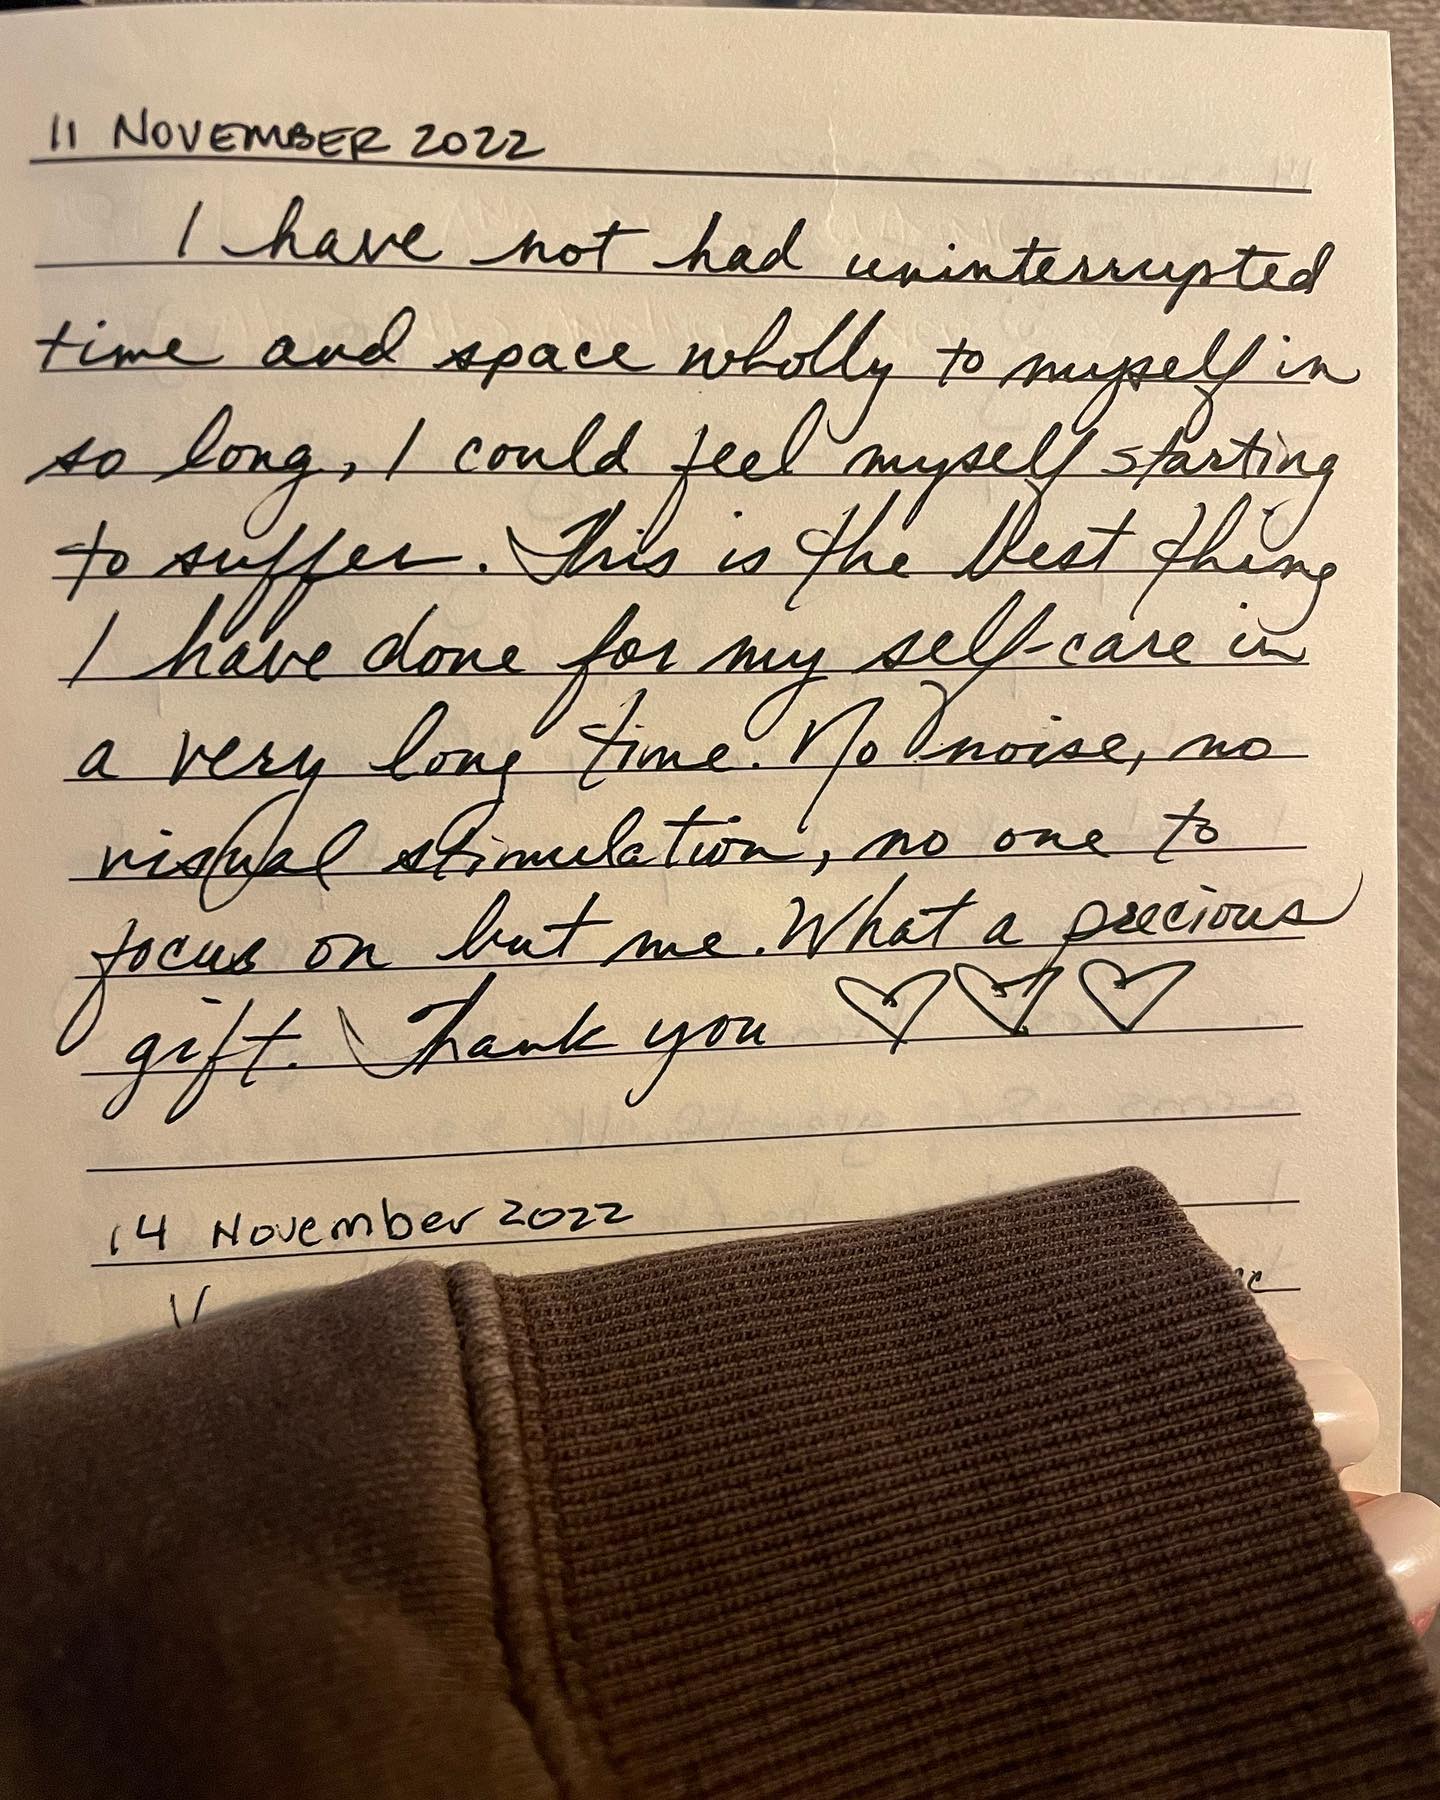 11 NOVEMBER 2022
I have not had uninterrupted
time and space wholly to myself in
so long, I could feel myself starting
to suffer. This is the best thing
I have done for my self-care in
a very long time. No noise, no
visual stimulation, no one to
focus on but me. What a precious
gift. Thank you ♡♡♡
14 November 2022